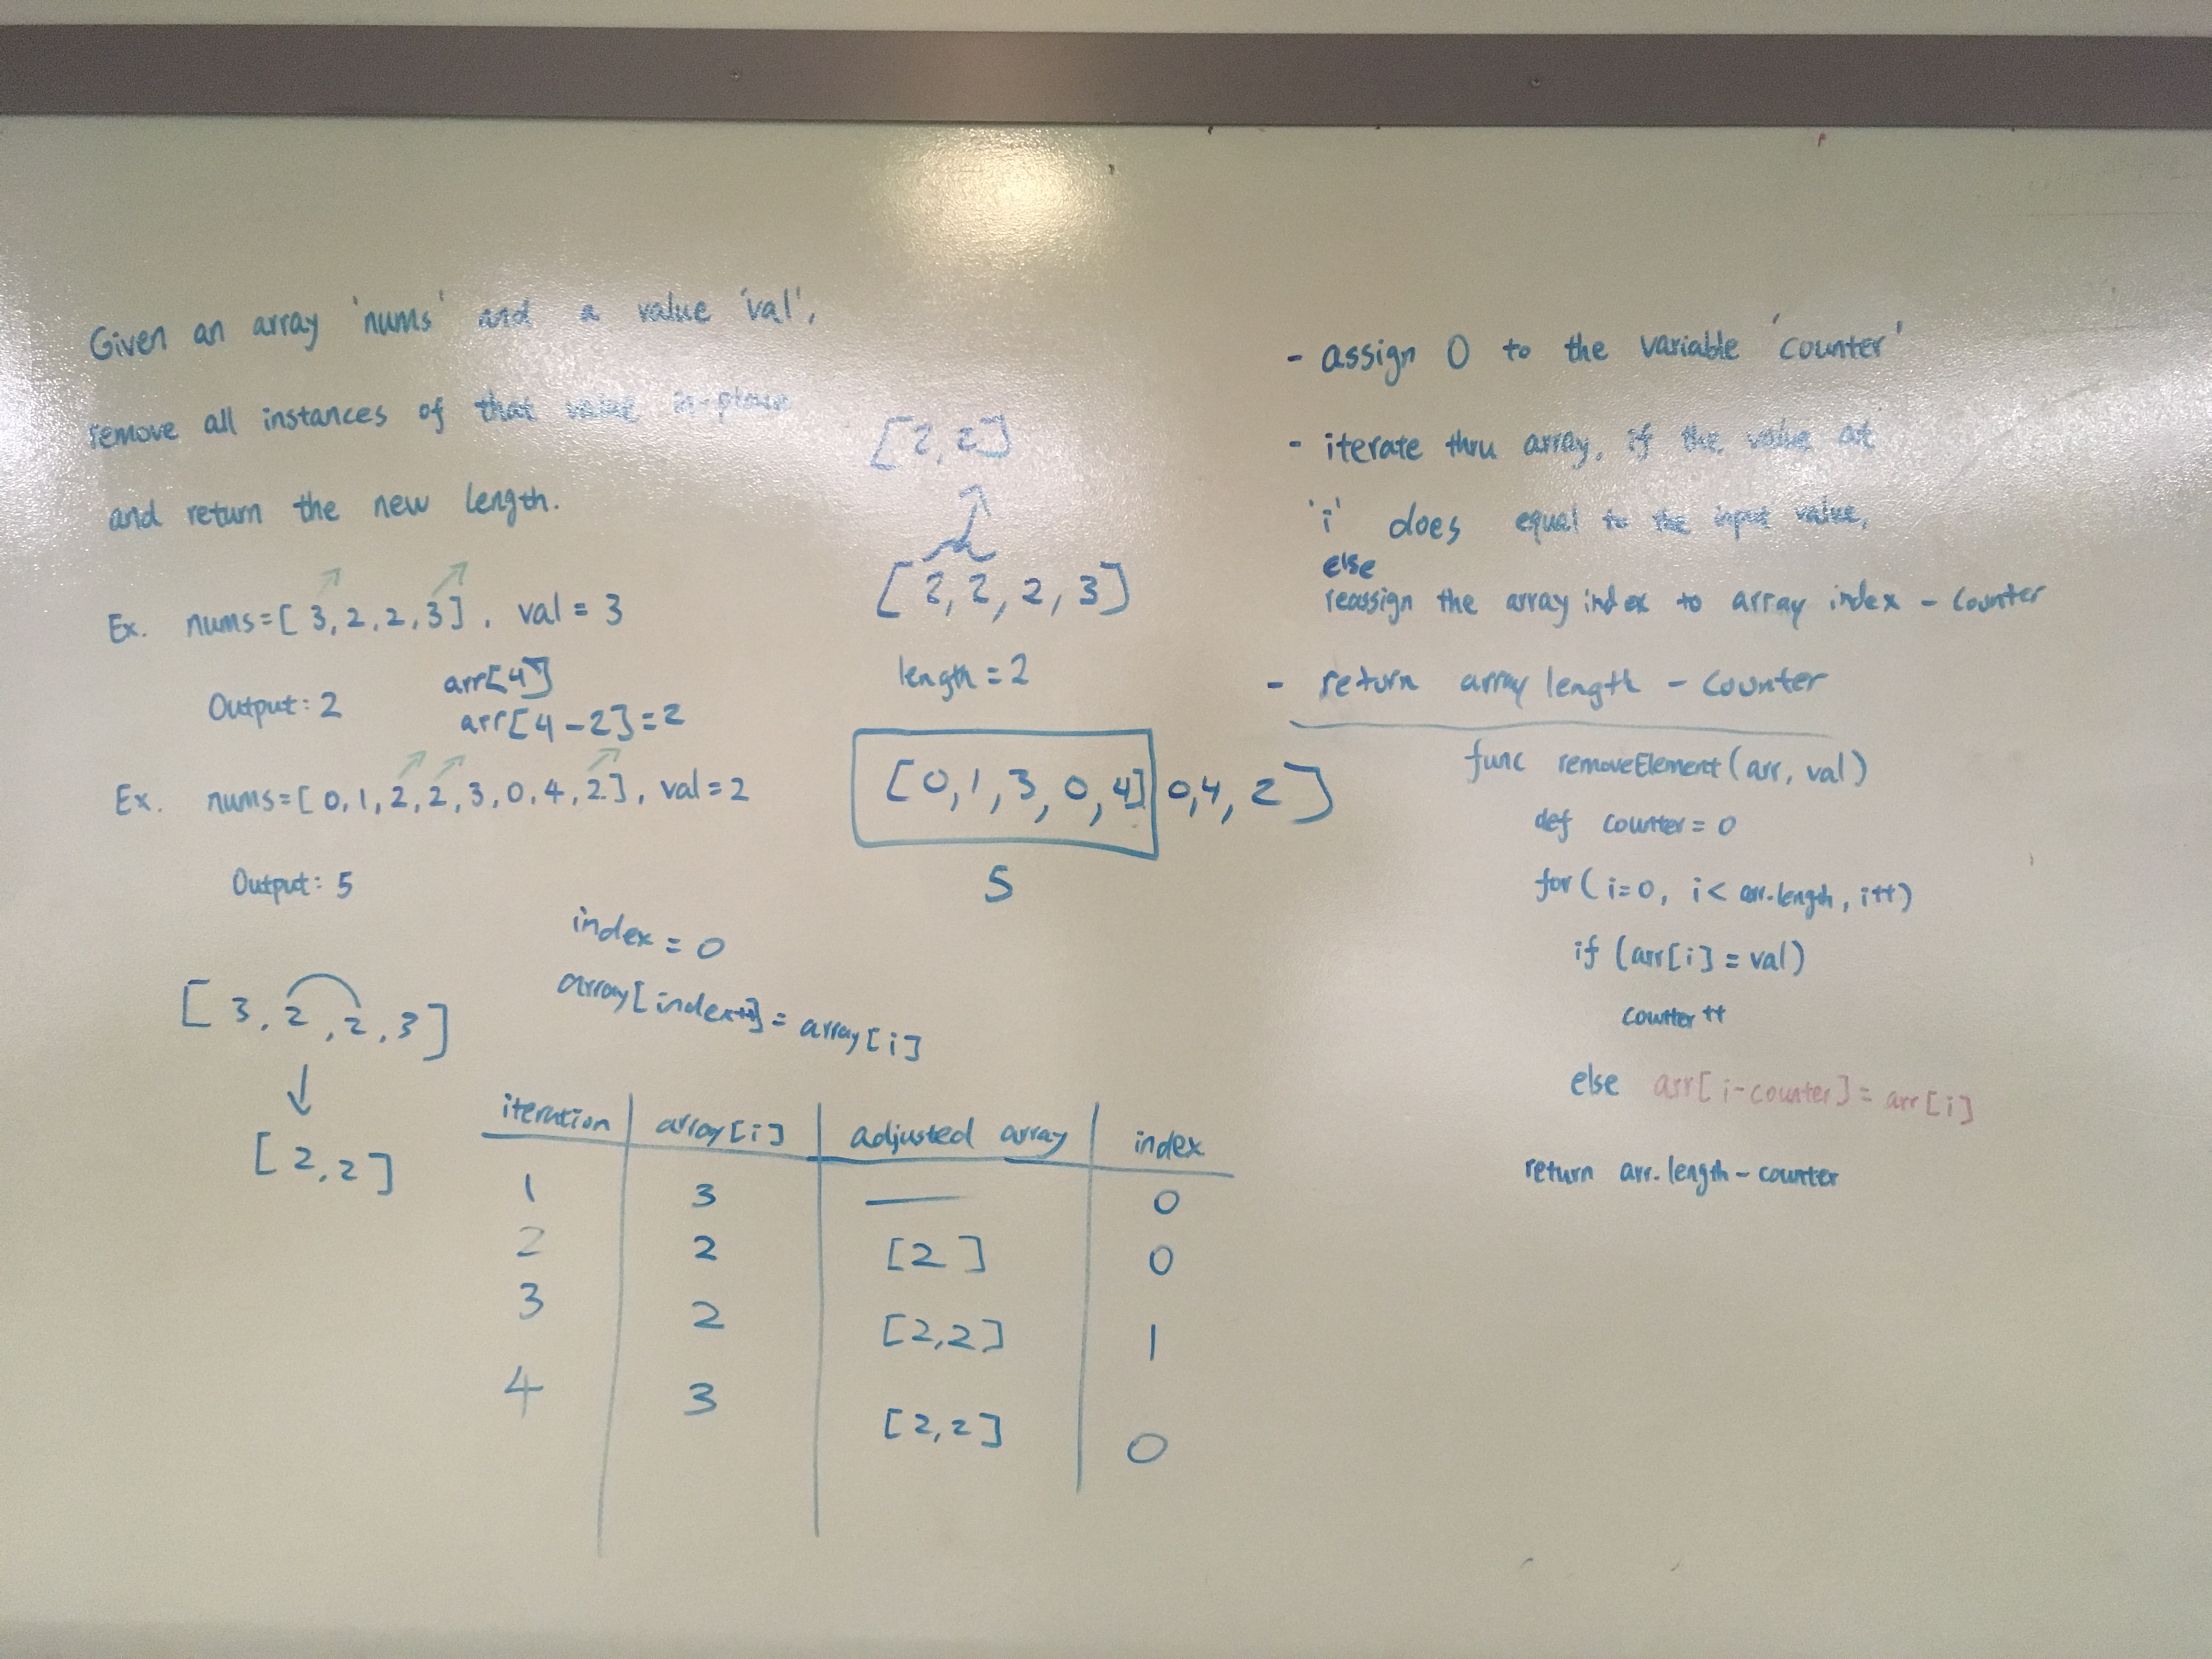 Given an array 'nums' and a value 'val',
remove all instances of that value in-place
and return the new length.
Ex. nums=[3,2,2,3], val=3
Output: 2
arr[4]
arr[4-2]=2
Ex. nums=[0,1,2,2,3,0,4,2], val=2
Output: 5
[3,2,2,3]
[2,2]
[2,2]
[2,2,2,3]
length=2
[0,1,3,0,4] 0,4,2]
5
index = 0
array[index++] = array[i]
iteration array[i] adjusted array index
1 3 — 0
2 2 [2] 0
3 2 [2,2] 1
4 3 [2,2] 0
- assign 0 to the variable 'counter'
- iterate thru array, if the value at
'i' does equal to the input value,
else
reassign the array index to array index - counter
- return array length - counter
func removeElement(arr, val)
def counter = 0
for(i=0, i< arr.length, i++)
if (arr[i] = val)
counter++
else arr[i-counter] = arr[i]
return arr.length-counter